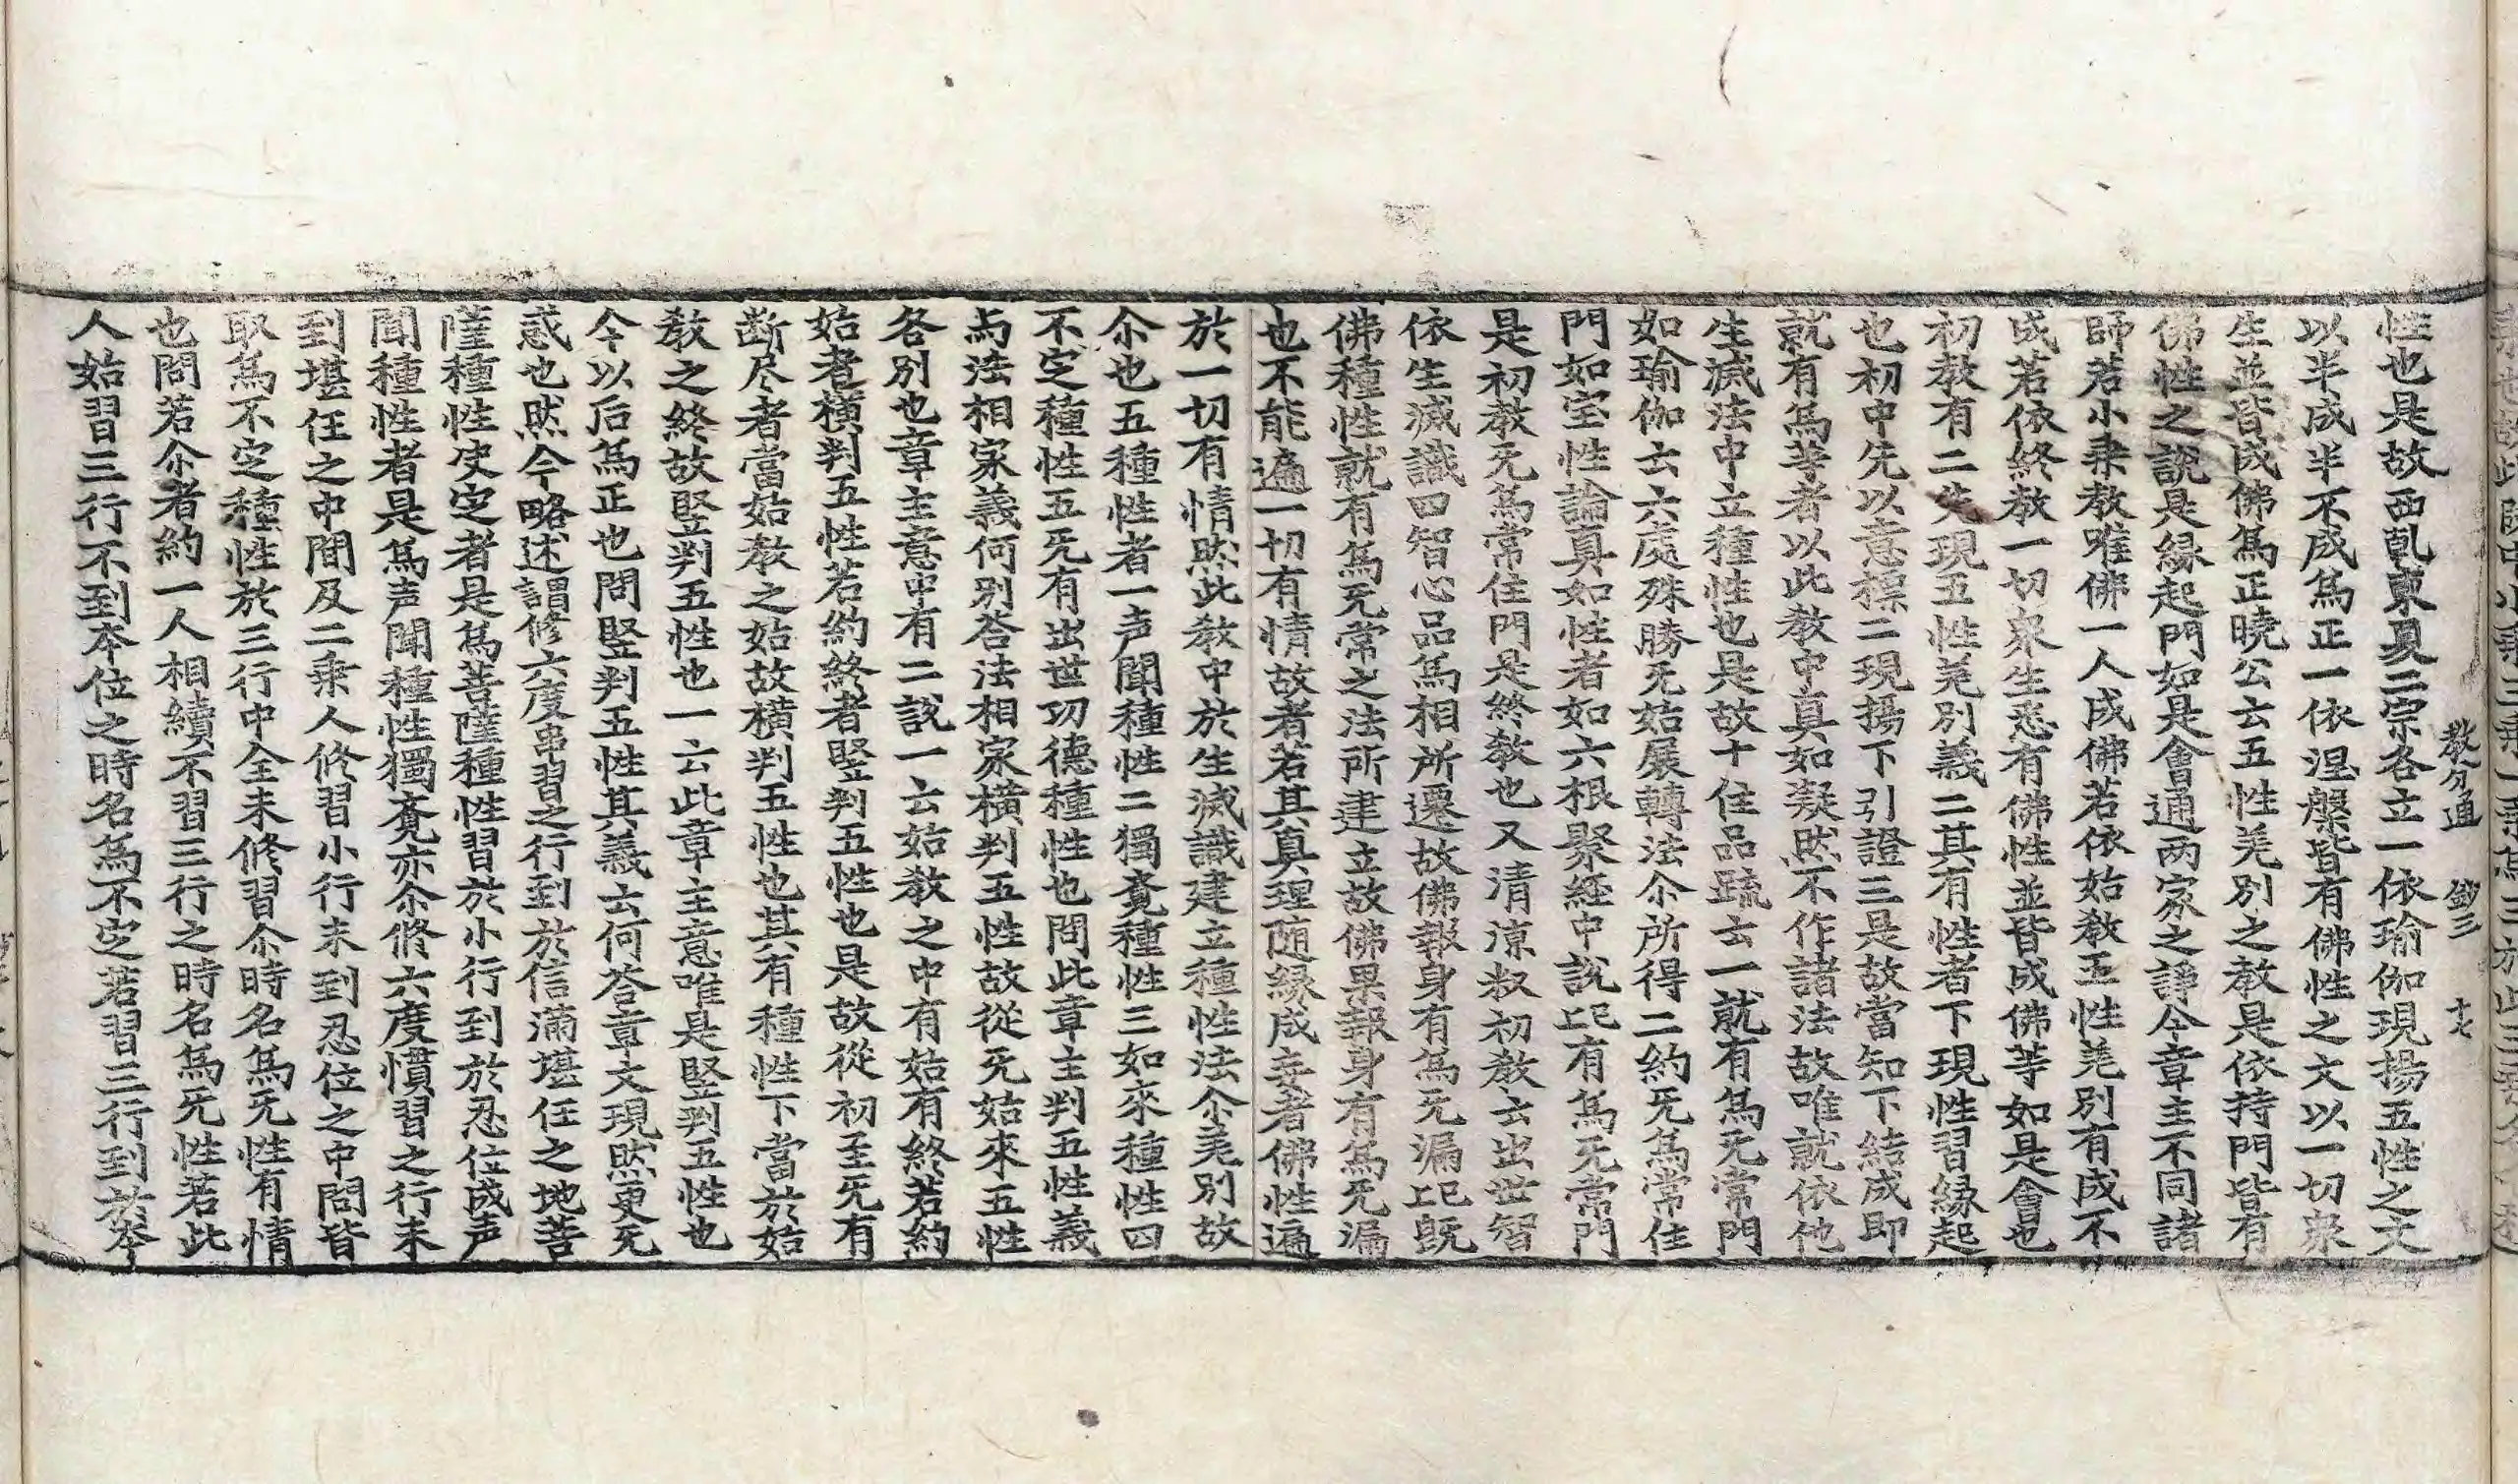 教分通 鈔三 十七
性也是故西乹東夏二宗各立一依瑜伽現揚五性之文
以半成半不成爲正一依涅槃皆有佛性之文以一切衆
生並皆成佛爲正曉公云五性羌別之教是依持門皆有
佛性之說是縁起門如是會通两家之諍今章主不同諸
師若小乗教唯佛一人成佛若依始教五性羌別有成不
成若依終教一切衆生悉有佛性並皆成佛等如是會也
初教有二先現五性羌別義二其有性者下現性習縁起
也初中先以意標二現揚下引證三是故當知下結成即
就有爲等者以此教中真如凝然不作諸法故唯就依他
生滅法中立種性也是故十住品䟽云一就有爲旡常門
如瑜伽云六處殊勝旡始展轉法尒所得二約旡爲常住
門如宝性論真如性者如六根聚経中說㠯有爲旡常門
是初教旡爲常住門是終教也又清凉叔初教云出世智
依生滅識四智心品爲相所遷故佛報身有爲旡漏㠯既
佛種性就有爲旡常之法所建立故佛果報身有爲旡漏
也不能遍一切有情故者若其真理随縁成妄者佛性遍
於一切有情然此教中於生滅識建立種性法尒羌別故
尒也五種性者一声聞種性二獨覔種性三如來種性四
不定種性五旡有出世㓛德種性也問此章主判五性義
与法相家義何别荅法相家横判五性故從旡始來五性
各別也章主意中有二說一云始教之中有始有終若約
始者横判五性若約終者竪判五性也是故從初至旡有
断尽者當始教之始故横判五性也其有種性下當於始
教之終故竪判五性也一云此章主意唯是竪判五性也
今以后爲正也問竪判五性其義云何荅章文現然更旡
惑也然今略述謂修六度串習之行到於信滿堪任之地菩
薩種性㕜定者是爲菩薩種性習於小行到於忍位成声
聞種性者是爲声聞種性獨覔亦尒修六度慣習之行未
到堪任之中間及二乗人修習小行未到忍位之中間皆
取爲不定種性於三行中全未修習尒時名爲旡性有情
也問若尒者約一人相續不習三行之時名爲旡性若此
人始習三行不到本位之時名爲不定若習三行到於本